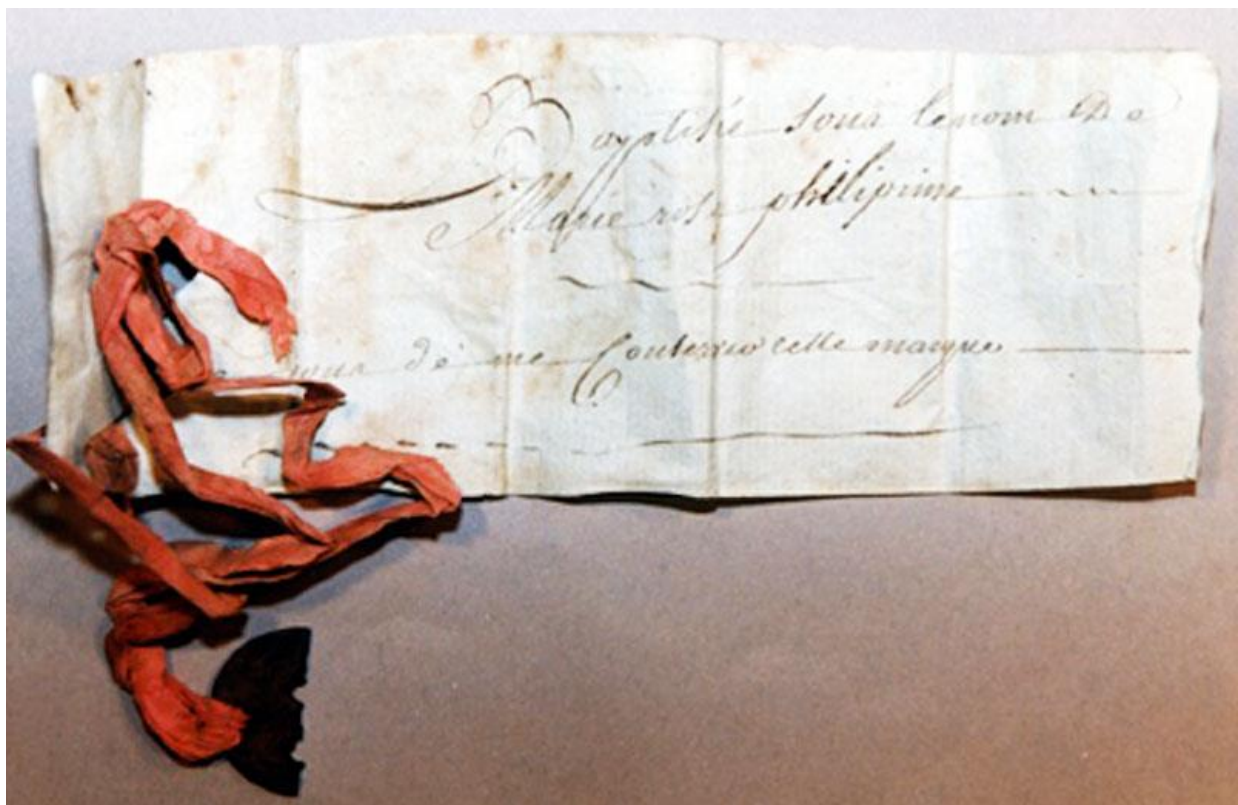 Baptisée sous le nom De
Marie rose philipine
prius dé me Conserver cette marque